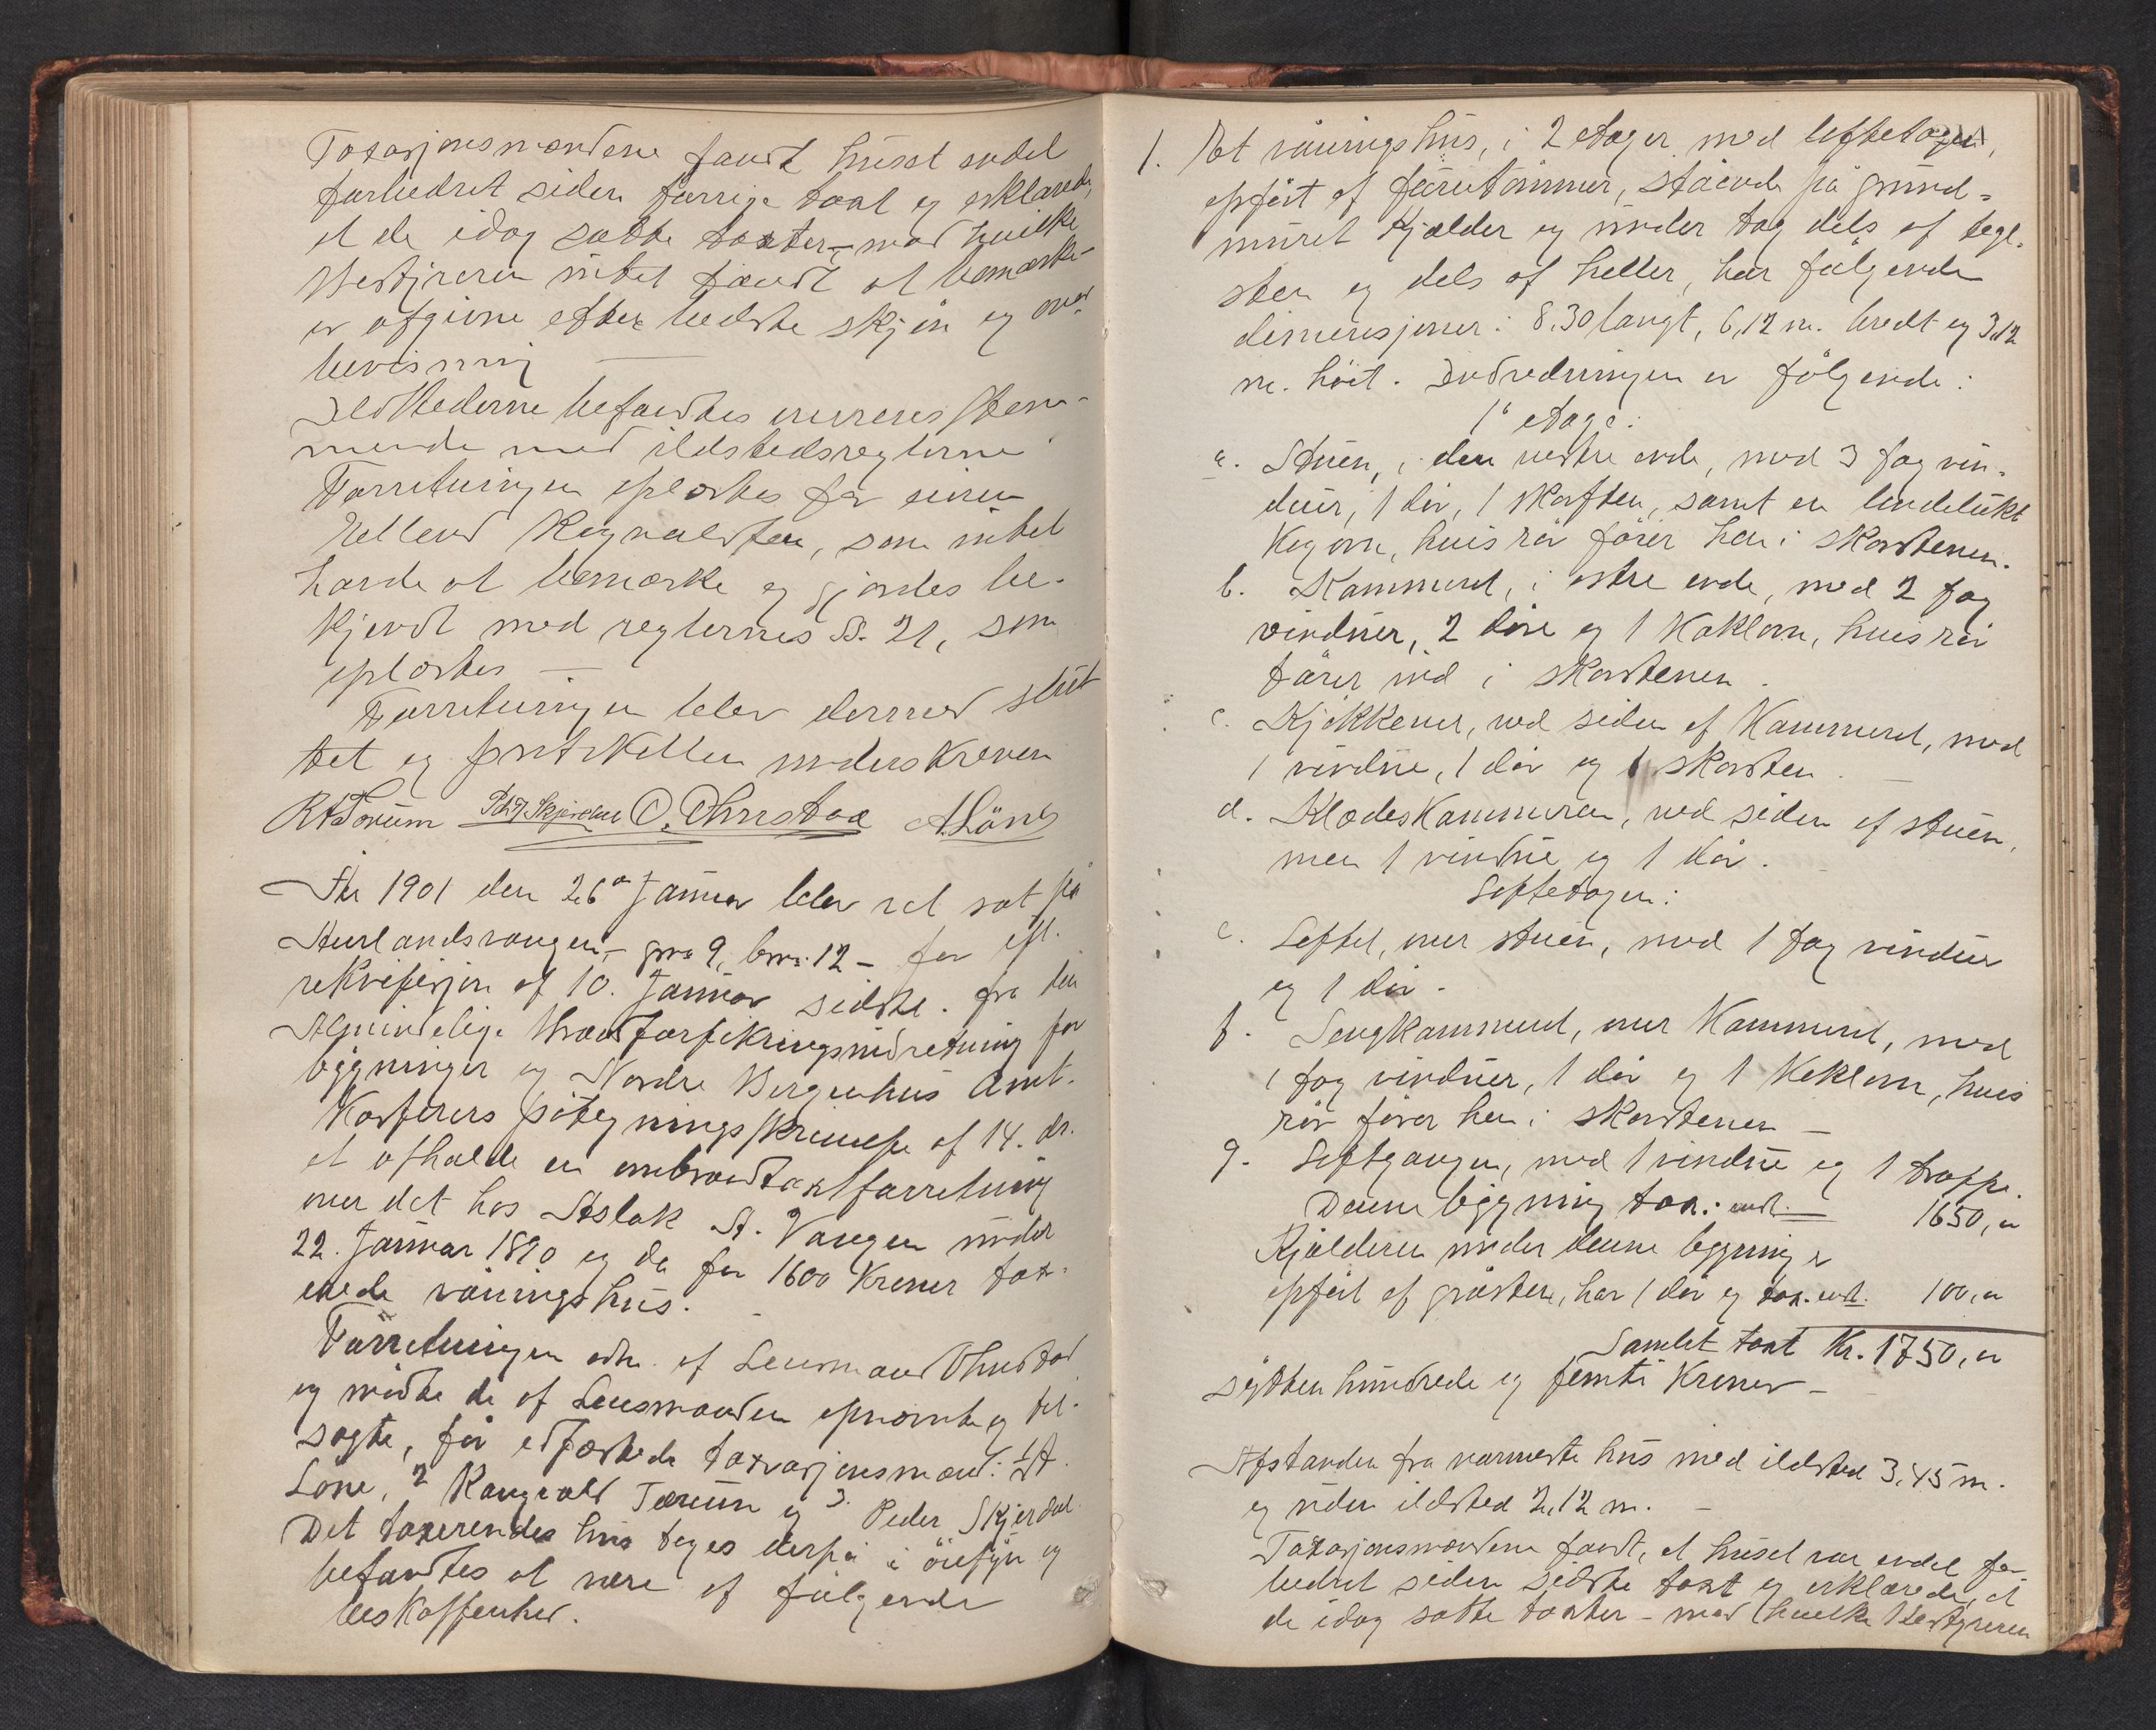 Taxasjonsmændene fandt huset endel
forbedret siden forrige taxt og erklærede,
at de idag satte taxter, – mod hvilke
Bestyreren intet fandt at bemærke –
er afgivne efter bedste skjøn og over-
bevisning —
Ildstederne befandtes overensstem-
mende med ildstedsreglerne
Forretningen oplæstes for eieren
Helleus Ragnvaldsen, som intet
havde at bemærke og gjordes be-
kjendt med reglernes §. 21, som
oplæstes —
Forretningen blev dermed slut-
tet og protokollen underskreven
R A Torum Peder Skjerdal O. Ohnstad A. Løne
År 1901 den 26de Januar blev ret sat på
Aurlandsvangen – gno 9, bno. 12 – for efl.
rekvisisjon af 10. Januar sidstl. fra den
Almindelige Brandforsikringsindretning for
bygninger og Nordre Bergenhus Amt-
kasserers påtegningsskrivelse af 14. ds.
at afholde en ombrandtaxtforretning
over det hos Aslak A. Vangen under
22. Januar 1890 og da for 1600 Kroner tax-
erede våningshus. –
Forretningen adm. af Lensmand Ohnstad
og mødte de af Lensmanden opnævnte og til-
sagte, før edfæstede taxasjonsmænd: 1 A.
Løne, 2 Rangvald Tørum og 3. Peder Skjerdal
Det taxerendes hus toges derpå i øiesyn og
befandtes at være af følgende
beskaffenhed.
1. Et våningshus, i 2 etager med loftetagen,
opført af furutømmer, stående på grund-
muret Kjælder og under tag dels af tegl-
sten og dels af heller, har følgende
dimensjoner: 8,30 langt, 6,12 m. bredt og 3,12
m. høit. Indredningen er følgende:
1e etage:
a. Stuen, i den vestre ende, med 3 fag vin-
duer, 1 dør, 1 skorsten, samt en bindelukt
Kogovn, hvis rør fører hen i skorstenen.
b. Kammeret, i østre ende, med 2 fag
vinduer, 2 døre og 1 Kaklovn, hvis rør
fører ind i skorstenen.
c. Kjøkkenet, ved siden af Kammeret, med
1 vindue, 1 dør og 1 skorsten —
d. Klædeskammeren, ved siden af stuen,
med 1 vindue og 1 dør.
Loftetagen:
e. Loftet, over stuen, med 1 fag vinduer
og 1 dør.
f. Sengkammeret, over Kammeret, med
1 fag vinduer, 1 dør og 1 Kaklovn, hvis
rør fører hen i skorstenen —
g. Loftgangen, med 1 vindue og 1 trappe.
Denne bygning tax. – 1650, „
Kjælderen under denne bygning er
opført af gråsten, har 1 dør og tax. 100, „
Samlet taxt Kr. 1750, „
sytten hundrede og femti Kroner –
Afstanden fra nærmeste hus med ildsted 3,45 m.
og uden ildsted 2,12 m. –
Taxasjonsmændene fandt, at huset var endel for-
bedret siden sidste taxt og erklærede, at
de idag satte taxter – mod hvilke Bestyreren